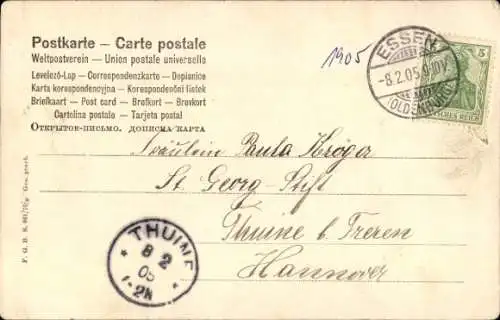 Postkarte – Carte postale
Weltpostverein – Union postale universelle
Levelező-Lap – Correspondenzkarte – Dopisnice
Karta korespondencyjna – Korespondenční lístek
Briefkaart – Post card – Brefkort – Brevkort
Cartolina postale – Tarjeta postal
Открытое письмо. Дописна карта
1905
ESSEN
-8.2.05.
(OLDENBURG)
5
DEUTSCHES REICH
Fräulein Paula Kröger
St. Georg-Stift
Thuine b. Freren
Hannover
THUINE
8 2
05
1-2N